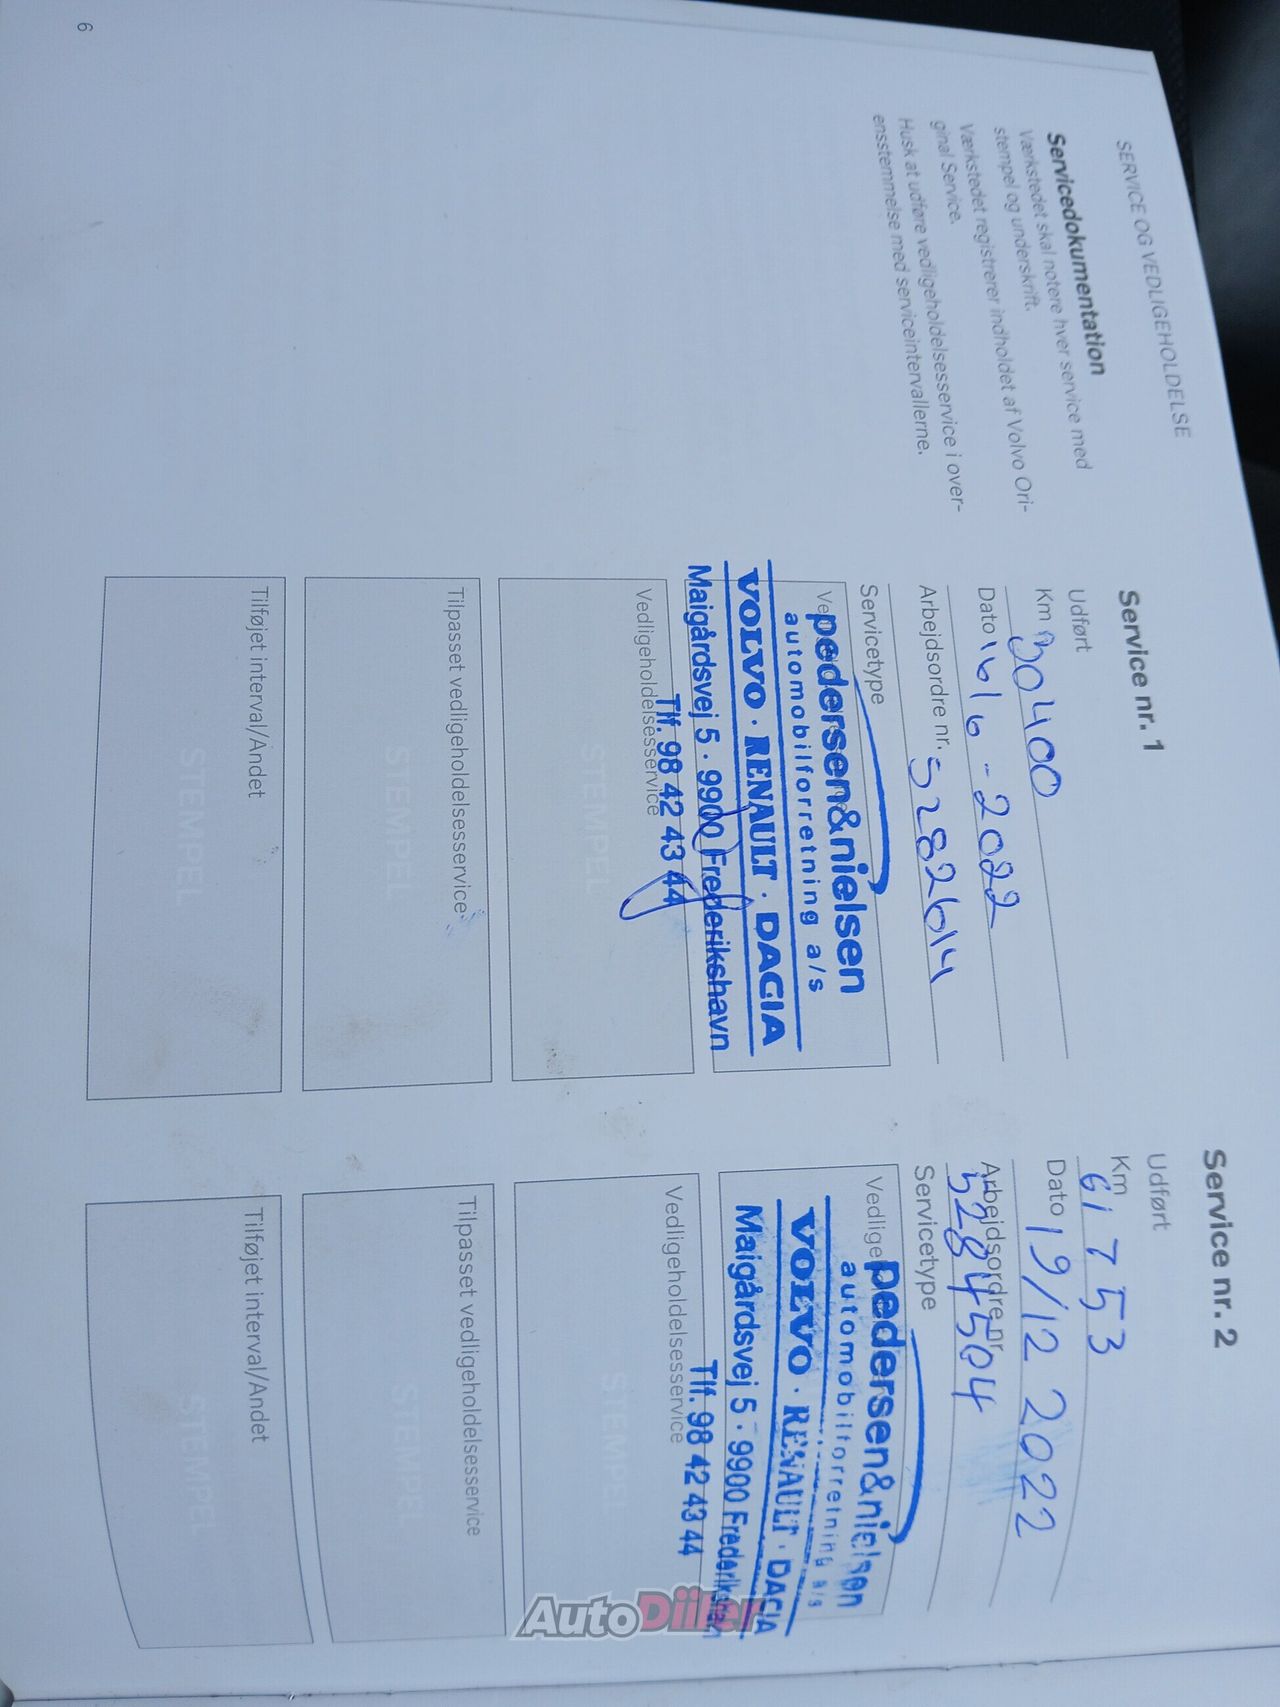 SERVICE OG VEDLIGEHOLDELSE
Servicedokumentation
Værkstedet skal notere hver service med
stempel og underskrift.
Værkstedet registrerer indholdet af Volvo Ori-
ginal Service.
Husk at udføre vedligeholdelsesservice i over-
ensstemmelse med serviceintervallerne.
Service nr. 1
Udført
Km 30400
Dato 16/6-2022
Arbejdsordre nr. 5282614
Servicetype
pedersen&nielsen
automobilforretning a/s
VOLVO · RENAULT · DACIA
Maigårdsvej 5 · 9900 Frederikshavn
Tlf. 98 42 43 44
Vedligeholdelsesservice
STEMPEL
Tilpasset vedligeholdelsesservice
STEMPEL
Tilføjet interval/Andet
STEMPEL
Service nr. 2
Udført
Km 61753
Dato 19/12 2022
Arbejdsordre nr.
5284504
Servicetype
Vedlige
pedersen&nielsen
automobilforretning a/s
VOLVO · RENAULT · DACIA
Maigårdsvej 5 · 9900 Frederikshavn
Tlf. 98 42 43 44
Vedligeholdelsesservice
STEMPEL
Tilpasset vedligeholdelsesservice
STEMPEL
Tilføjet interval/Andet
STEMPEL
6
AutoDiiler